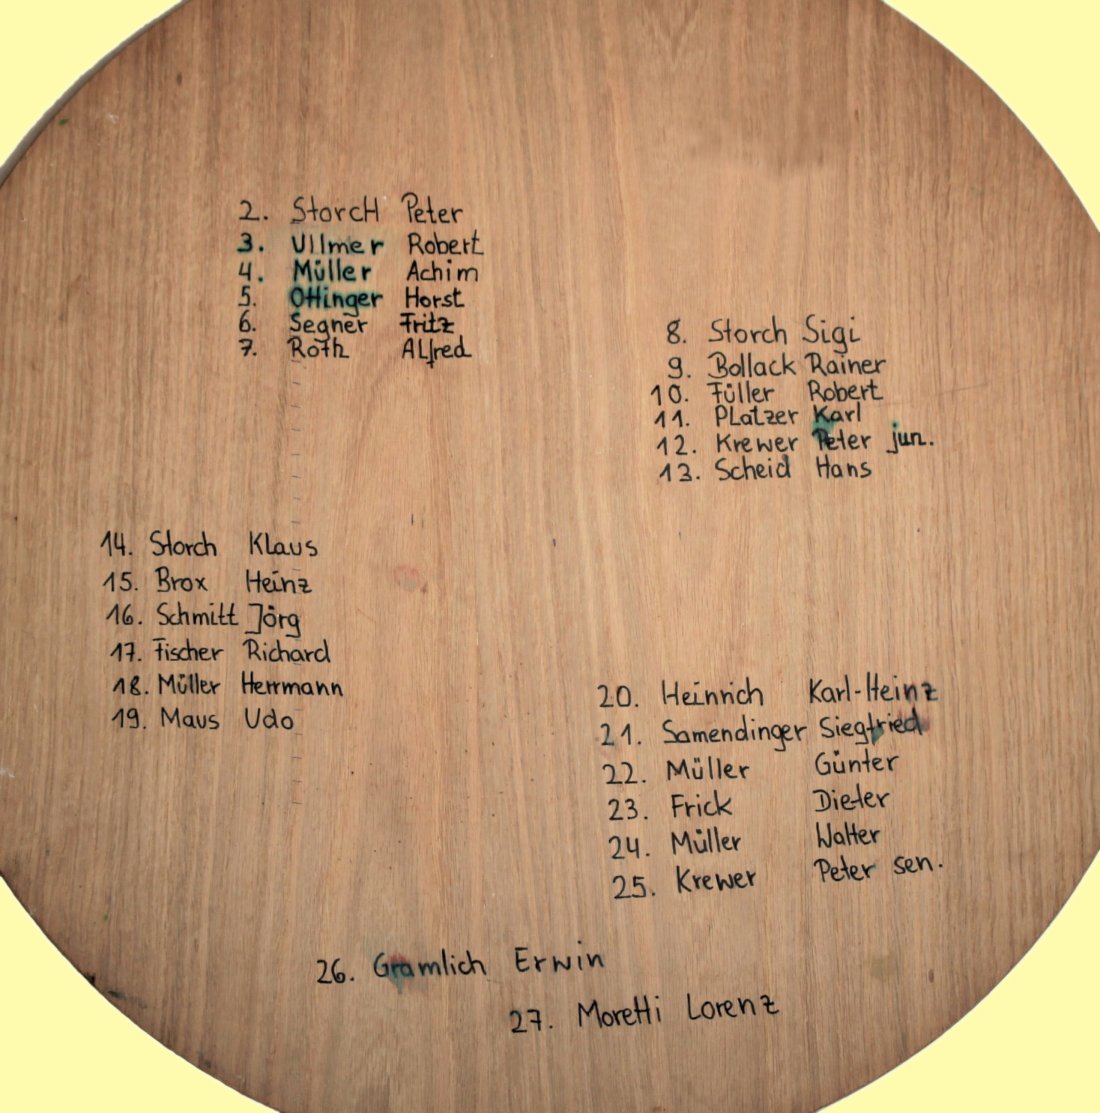 2. Storch Peter
3. Ullmer Robert
4. Müller Achim
5. Ottinger Horst
6. Segner Fritz
7. Roth Alfred
8. Storch Sigi
9. Bollack Rainer
10. Füller Robert
11. Platzer Karl
12. Krewer Peter jun.
13. Scheid Hans
14. Storch Klaus
15. Brox Heinz
16. Schmitt Jörg
17. Fischer Richard
18. Müller Herrmann
19. Maus Udo
20. Heinrich Karl-Heinz
21. Samendinger Siegfried
22. Müller Günter
23. Frick Dieter
24. Müller Walter
25. Krewer Peter sen.
26. Gramlich Erwin
27. Moretti Lorenz